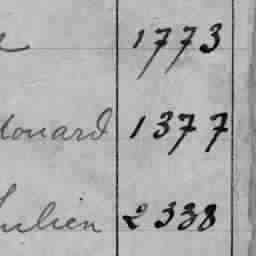 1773
douard 1377
Julien 2338